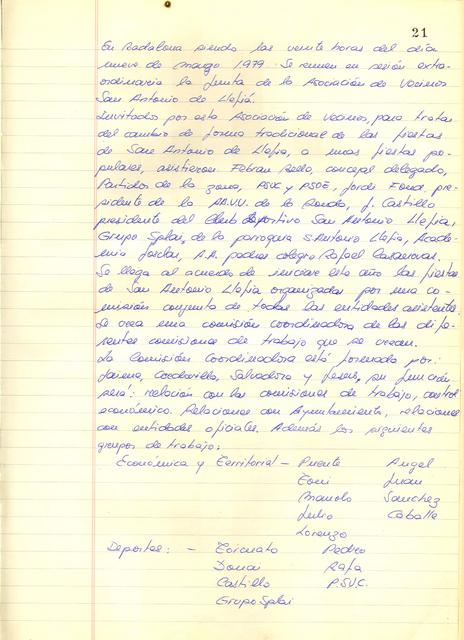 21
En Badalona siendo las veinte horas del día
nueve de marzo 1979. Se reunen en sesión extra-
ordinaria la Junta de la Asociación de Vecinos
San Antonio de Llefiá.
Invitados por esta Asociación de Vecinos, para tratar
del cambio de forma tradicional de las fiestas
de San Antonio de Llefia, a unas fiestas po-
pulares, asistieron Febran Bello, concejal delegado,
Partidos de la zona, PSUC y PSOE, Jordi Fond, pre-
sidente de la AA.VV. de la Ronda, J. Castillo
presidente del Club Deportivo San Antonio Llefia,
Grupo Splai, de la parroquia S. Antonio Llefia, Acade-
mia Jordar, A.A. padres colegio Rafael Casanovas.
Se llega al acuerdo de iniciar este año las fiestas
de San Antonio Llefia organizadas por una co-
misión conjunta de todas las entidades asistentes.
Se crea una comisión coordinadora de las dife-
rentes comisiones de trabajo que se crean.
La Comisión Coordinadora está formada por:
Jaena, Cordovilla, Salvadora y Jesus, su función
será: relación con las comisiones de trabajo, control
económico. Relaciones con Ayuntamiento, relaciones
con entidades oficiales. Además los siguientes
grupos de trabajo:
Económica y Territorial - Puente Angel
Toni Juan
Manolo Sanchez
Julio Caballe
Lorenzo
Deportes: - Torcuato Pedro
Donai Rafa
Castillo P.S.U.C.
Grupo Splai